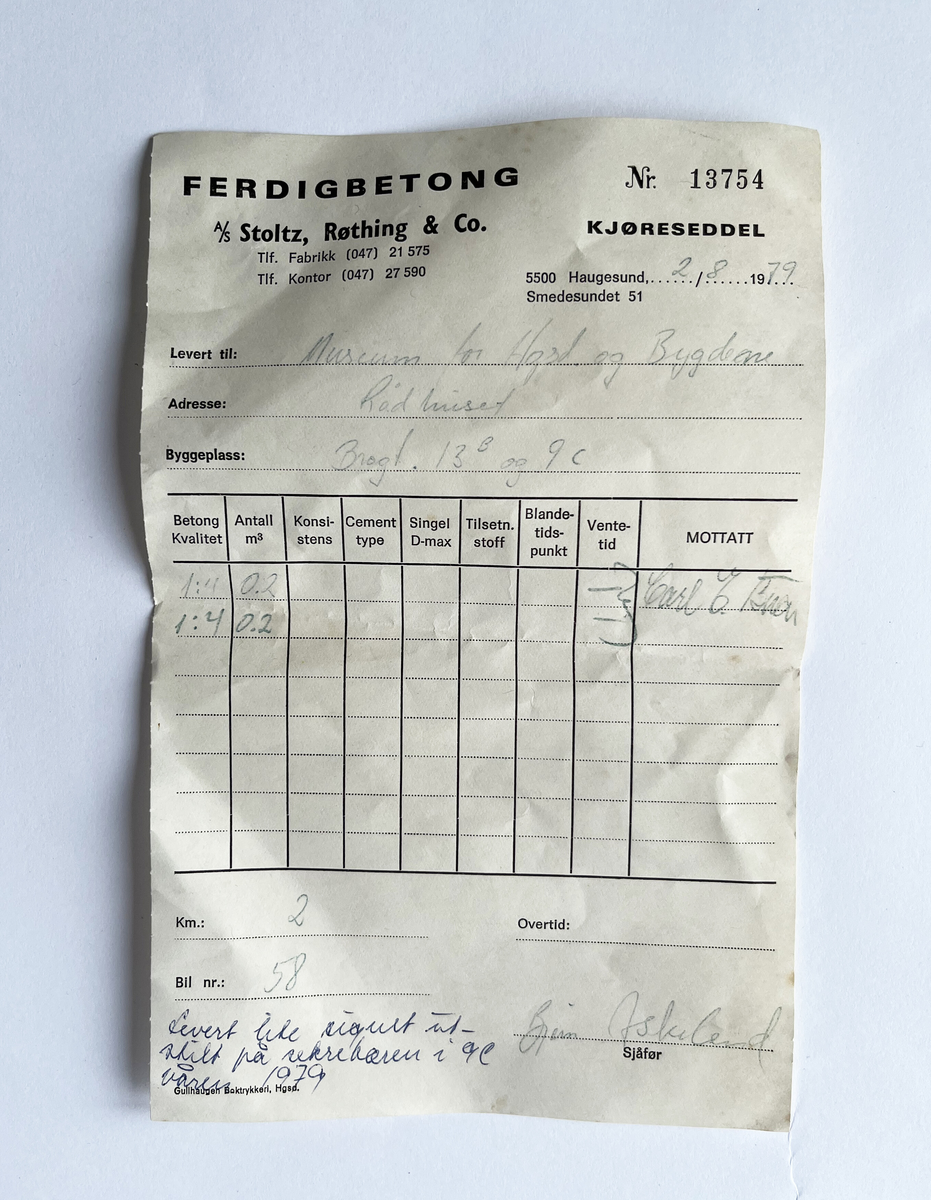 FERDIGBETONG
Nr. 13754
A/S Stoltz, Røthing & Co.
KJØRESEDDEL
Tlf. Fabrikk (047) 21 575
Tlf. Kontor (047) 27 590
5500 Haugesund, 2/8 1979
Smedesundet 51
Levert til: Museum for Hgsd og Bygdene
Adresse: Rådhuset
Byggeplass: Bragt. 13B og 9c
Betong Kvalitet Antall m³ Konsi-stens Cement type Singel D-max Tilsetn. stoff Blande-tids-punkt Vente-tid MOTTATT
1:4 0.2 Carl E
1:4 0.2
Km.: 2
Overtid:
Bil nr.: 58
Levert lite signert ut-
stilt på sekretæren i 9C
våren 1979
Bjørn Askeland
Sjåfør
Gullhaugen Boktrykkeri, Hgsd.